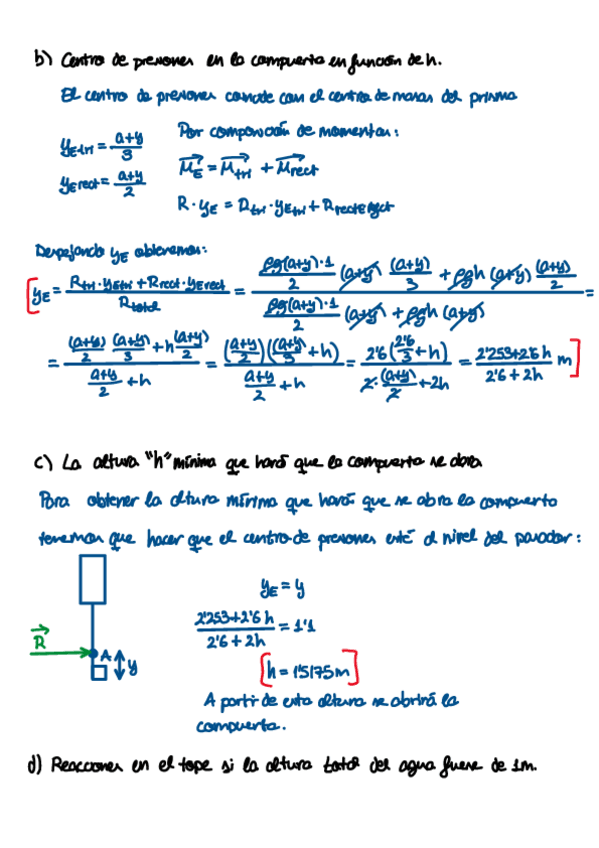 b) Centro de presiones en la compuerta en función de h.
El centro de presiones coincide con el centro de masas del prisma
y_{E tri} = \frac{a+y}{3}
Por composición de momentos:
y_{E rect} = \frac{a+y}{2}
\vec{M_E} = \vec{M_{tri}} + \vec{M_{rect}}
R · y_E = R_{tri} · y_{E tri} + R_{rect} y_{E rect}
Despejando y_E obtenemos:
[ y_E = \frac{R_{tri} · y_{E tri} + R_{rect} · y_{E rect}}{R_{total}} = \frac{\frac{ρg(a+y)·1}{2} (a+y) \frac{(a+y)}{3} + ρgh (a+y) \frac{(a+y)}{2}}{\frac{ρg(a+y)·1}{2} (a+y) + ρgh (a+y)} =
= \frac{\frac{(a+y)}{2} \frac{(a+y)}{3} + h \frac{(a+y)}{2}}{\frac{a+y}{2} + h} = \frac{(\frac{a+y}{2})(\frac{(a+y)}{3} + h)}{\frac{a+y}{2} + h} = \frac{2'6 (\frac{2'6}{3} + h)}{2 · \frac{(a+y)}{2} + 2h} = \frac{2'253 + 2'6 h}{2'6 + 2h} m ]
c) La altura "h" mínima que hará que la compuerta se abra
Para obtener la altura mínima que hará que se abra la compuerta
tenemos que hacer que el centro de presiones esté al nivel del pasador:
y_E = y
\frac{2'253 + 2'6 h}{2'6 + 2h} = 1'1
\vec{R}
A
y
[ h = 1'5175 m ]
A partir de esta altura se abrirá la
compuerta.
d) Reacciones en el tope si la altura total del agua fuese de 1m.